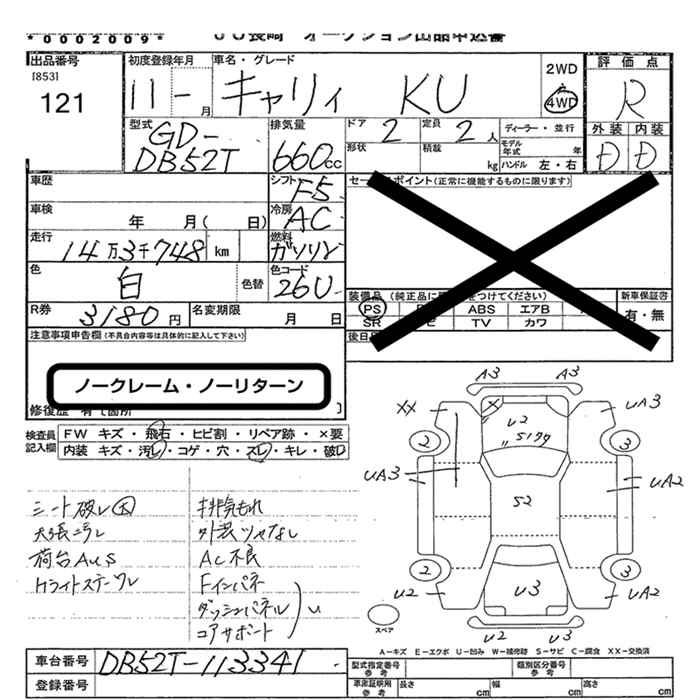 *0002009*
ＪＵ長崎 オークション出品申込書
出品番号 初度登録年月 車名・グレード 2WD 評価点
[853]
121 11－月 キャリイ KU 4WD R
型式 排気量 ドア 定員 ディーラー・並行 外装 内装
GD- 2 2人 モデル年式 年
DB52T 660cc 形状 積載 kg ハンドル 左・右 D D
車歴 シフト F5 セールスポイント(正常に機能するものに限ります)
車検 年 月( 日) 冷房 AC
走行 14万3千748 km 燃料 ガソリン
色 白 色替 色コード 26U
装備品 (純正品に をつけてください) 新車保証書
R券 3180円 名変期限 月 日 PS ABS エアB 有・無
SR TV カワ
注意事項申告欄(不具合内容等は具体的に記入して下さい) 後日
ノークレーム・ノーリターン
修復歴 有て箇所
検査員 FW キズ・飛石・ヒビ割・リペア跡・×要
記入欄 内装 キズ・汚レ・コゲ・穴・スレ・キレ・破レ
シート破レ大 排気もれ
天張ヨゴレ 外装ツヤなし
荷台AUS AC不良
Fインパネ
ダッシュパネル U
コアサポート
A3 A3
XX X U2 UA3
S179
2 3
UA3 S2 UA2
2 3
U2 U3 UA2
スペア U2 U3
A－キズ E－エクボ U－凹み W－補修跡 S－サビ C－腐食 XX－交換済
車台番号 DB52T-113341 型式指定番号 参考 類別区分番号 参考
登録番号 車庫証明用 参考 長さ cm 幅 cm 高さ cm